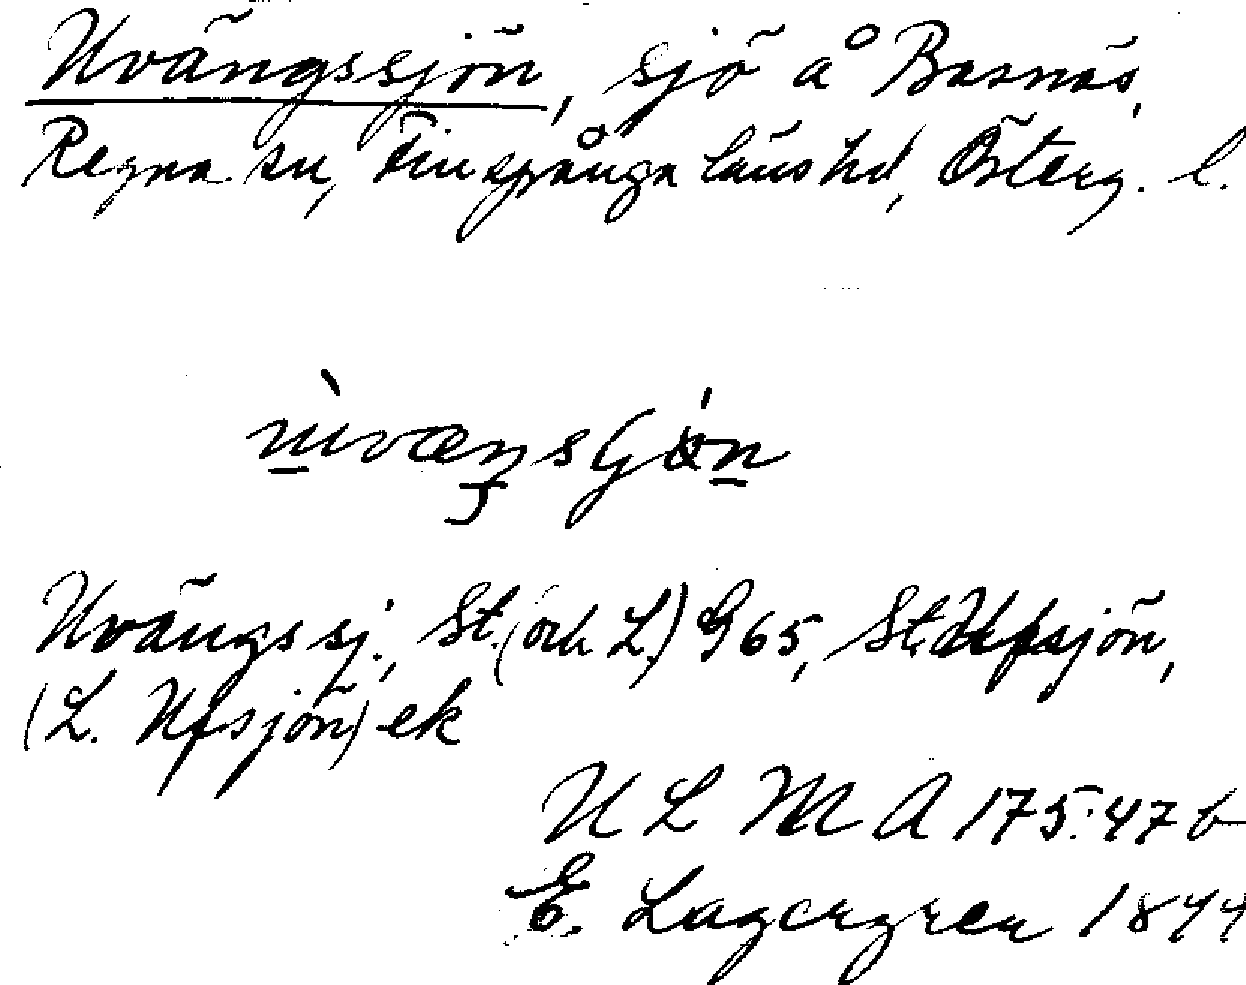 Uvängssjön, sjö å Basnäs,
Regna sn, Finspånga läns hd, Österg. l.
Uvängssj., St. (och L.) G65, St. Ufsjön,
(L. Ufsjön) ek
ULMA 175:47b
E. Lagergren 1894